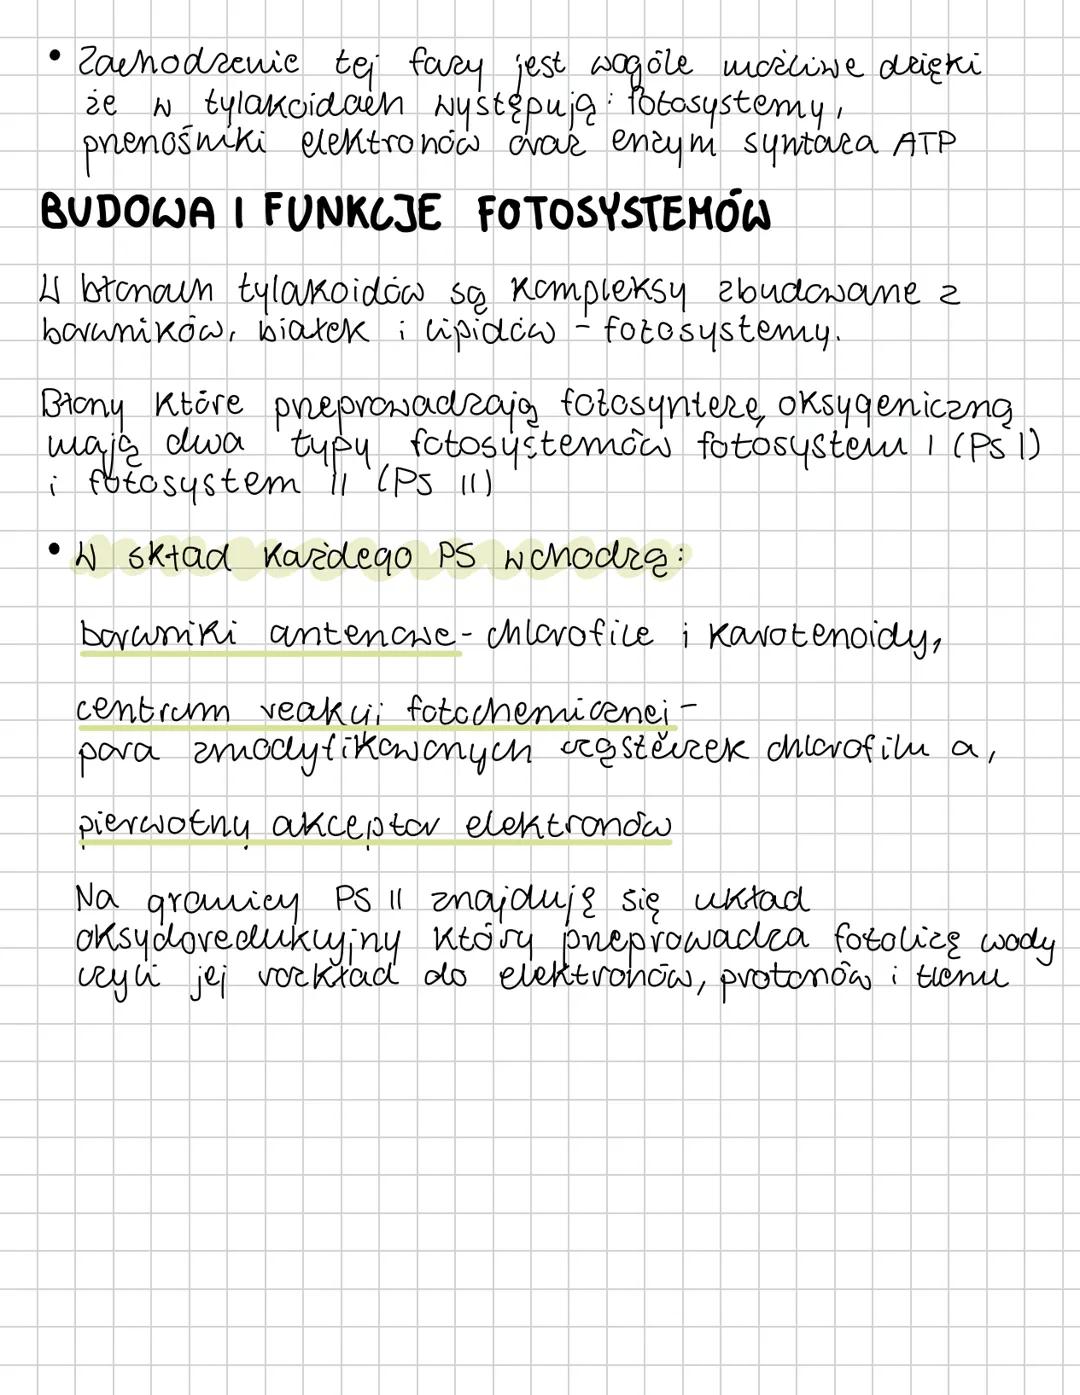 • Zachodzenie tej fazy jest wogóle możliwe dzięki
że w tylakoidach występują: fotosystemy,
przenośniki elektronów oraz enzym syntaza ATP
BUDOWA I FUNKCJE FOTOSYSTEMÓW
W błonach tylakoidów są kompleksy zbudowane z
barwników, białek i lipidów - fotosystemy.
Błony które przeprowadzają fotosyntezę oksygeniczną
mają dwa typy fotosystemów fotosystem I (PS I)
i fotosystem II (PS II)
• W skład każdego PS wchodzą:
barwniki antenowe - chlorofile i karotenoidy,
centrum reakcji fotochemicznej -
para zmodyfikowanych cząsteczek chlorofilu a,
pierwotny akceptor elektronów
Na granicy PS II znajduję się układ
oksydoredukcyjny który przeprowadza fotolizę wody
czyli jej rozkład do elektronów, protonów i tlenu